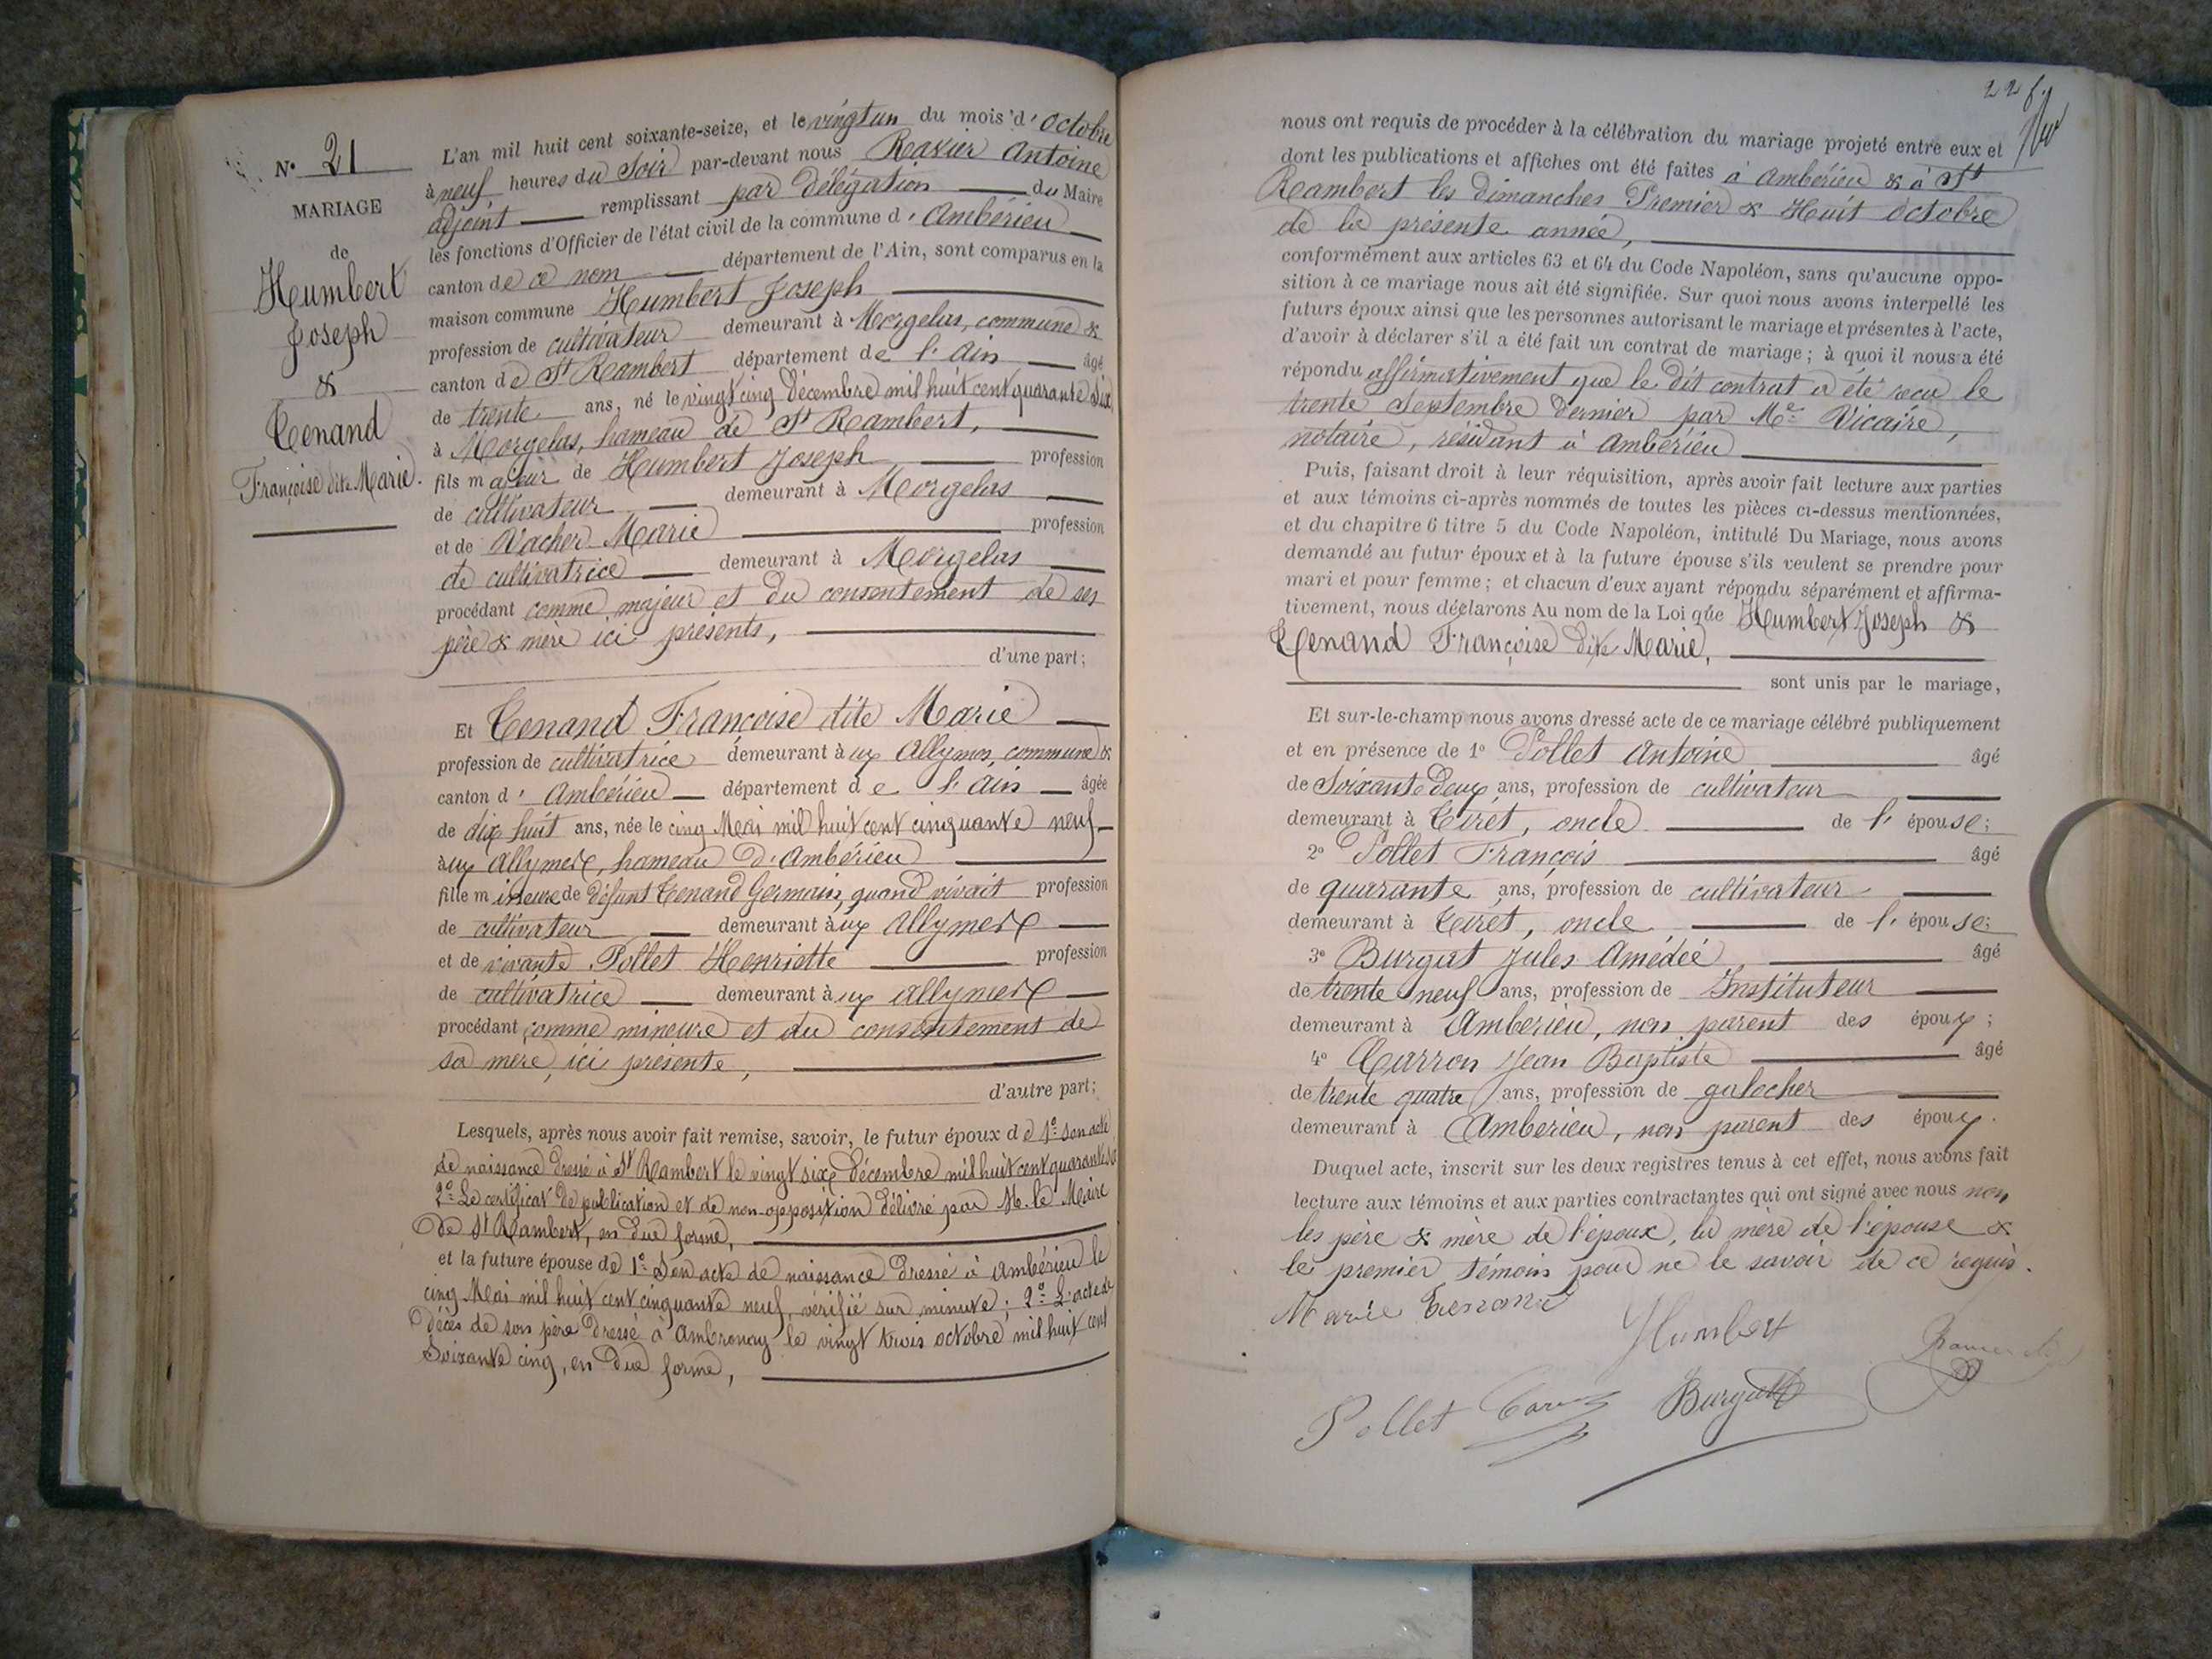 N° 21
MARIAGE
de
Humbert
Joseph
&
Tenand
Françoise dite Marie.
L'an mil huit cent soixante-seize, et le vingt un du mois d'octobre
à neuf heures du Soir par-devant nous Antoine
adjoint remplissant par délégation du Maire
les fonctions d'Officier de l'état civil de la commune d'Ambérieu
canton de ce nom département de l'Ain, sont comparus en la
maison commune Humbert Joseph
profession de cultivateur demeurant à Morgelas, commune &
canton de St Rambert département de l'Ain âgé
de trente ans, né le vingt cinq Décembre mil huit cent quarante six
à Morgelas, hameau de St Rambert,
fils majeur de Humbert Joseph profession
de cultivateur demeurant à Morgelas
et de Vacher Marie profession
de cultivatrice demeurant à Morgelas
procédant comme majeur et du consentement de ses
père & mère ici présents,
d'une part;
Et Tenand Françoise dite Marie
profession de cultivatrice demeurant aux Allymes, commune &
canton d'Ambérieu département de l'Ain âgée
de dix huit ans, née le cinq Mai mil huit cent cinquante neuf
aux Allymes, hameau d'Ambérieu
fille mineure de défunt Tenand Germain, quand vivait profession
de cultivateur demeurant aux Allymes
et de vivante Pollet Henriette profession
de cultivatrice demeurant aux Allymes
procédant comme mineure et du consentement de
sa mère, ici présente,
d'autre part;
Lesquels, après nous avoir fait remise, savoir, le futur époux de 1° son acte
de naissance dressé à St Rambert le vingt six Décembre mil huit cent quarante six
2° Le certificat de publication et de non-opposition délivré par M. le Maire
de St Rambert, en due forme,
et la future épouse de 1° Son acte de naissance dressé à Ambérieu le
cinq Mai mil huit cent cinquante neuf, vérifié sur minute; 2° L'acte de
décès de son père dressé à Ambronay le vingt trois octobre mil huit cent
soixante cinq, en due forme,
nous ont requis de procéder à la célébration du mariage projeté entre eux et
dont les publications et affiches ont été faites à Ambérieu & à St
Rambert les dimanches Premier & Huit octobre
de la présente année,
conformément aux articles 63 et 64 du Code Napoléon, sans qu'aucune oppo-
sition à ce mariage nous ait été signifiée. Sur quoi nous avons interpellé les
futurs époux ainsi que les personnes autorisant le mariage et présentes à l'acte,
d'avoir à déclarer s'il a été fait un contrat de mariage; à quoi il nous a été
répondu affirmativement que le dit contrat a été reçu le
trente Septembre dernier par Me Vicaire,
notaire, résidant à Ambérieu
Puis, faisant droit à leur réquisition, après avoir fait lecture aux parties
et aux témoins ci-après nommés de toutes les pièces ci-dessus mentionnées,
et du chapitre 6 titre 5 du Code Napoléon, intitulé Du Mariage, nous avons
demandé au futur époux et à la future épouse s'ils veulent se prendre pour
mari et pour femme; et chacun d'eux ayant répondu séparément et affirma-
tivement, nous déclarons Au nom de la Loi que Humbert Joseph &
Tenand Françoise dite Marie,
sont unis par le mariage,
Et sur-le-champ nous avons dressé acte de ce mariage célébré publiquement
et en présence de 1° Pollet Antoine âgé
de Soixante Deux ans, profession de cultivateur
demeurant à Tiret, oncle de l'épouse;
2° Pollet François âgé
de quarante ans, profession de cultivateur
demeurant à Tiret, oncle de l'épouse;
3° Burgat Jules Amédée âgé
de trente neuf ans, profession de Instituteur
demeurant à Ambérieu, non parent des époux;
4° Carron Jean Baptiste âgé
de trente quatre ans, profession de galocher
demeurant à Ambérieu, non parent des époux.
Duquel acte, inscrit sur les deux registres tenus à cet effet, nous avons fait
lecture aux témoins et aux parties contractantes qui ont signé avec nous non
les père & mère de l'époux, la mère de l'épouse &
le premier témoin pour ne le savoir de ce requis.
Marie Tenand
Humbert
Pollet
Burgat